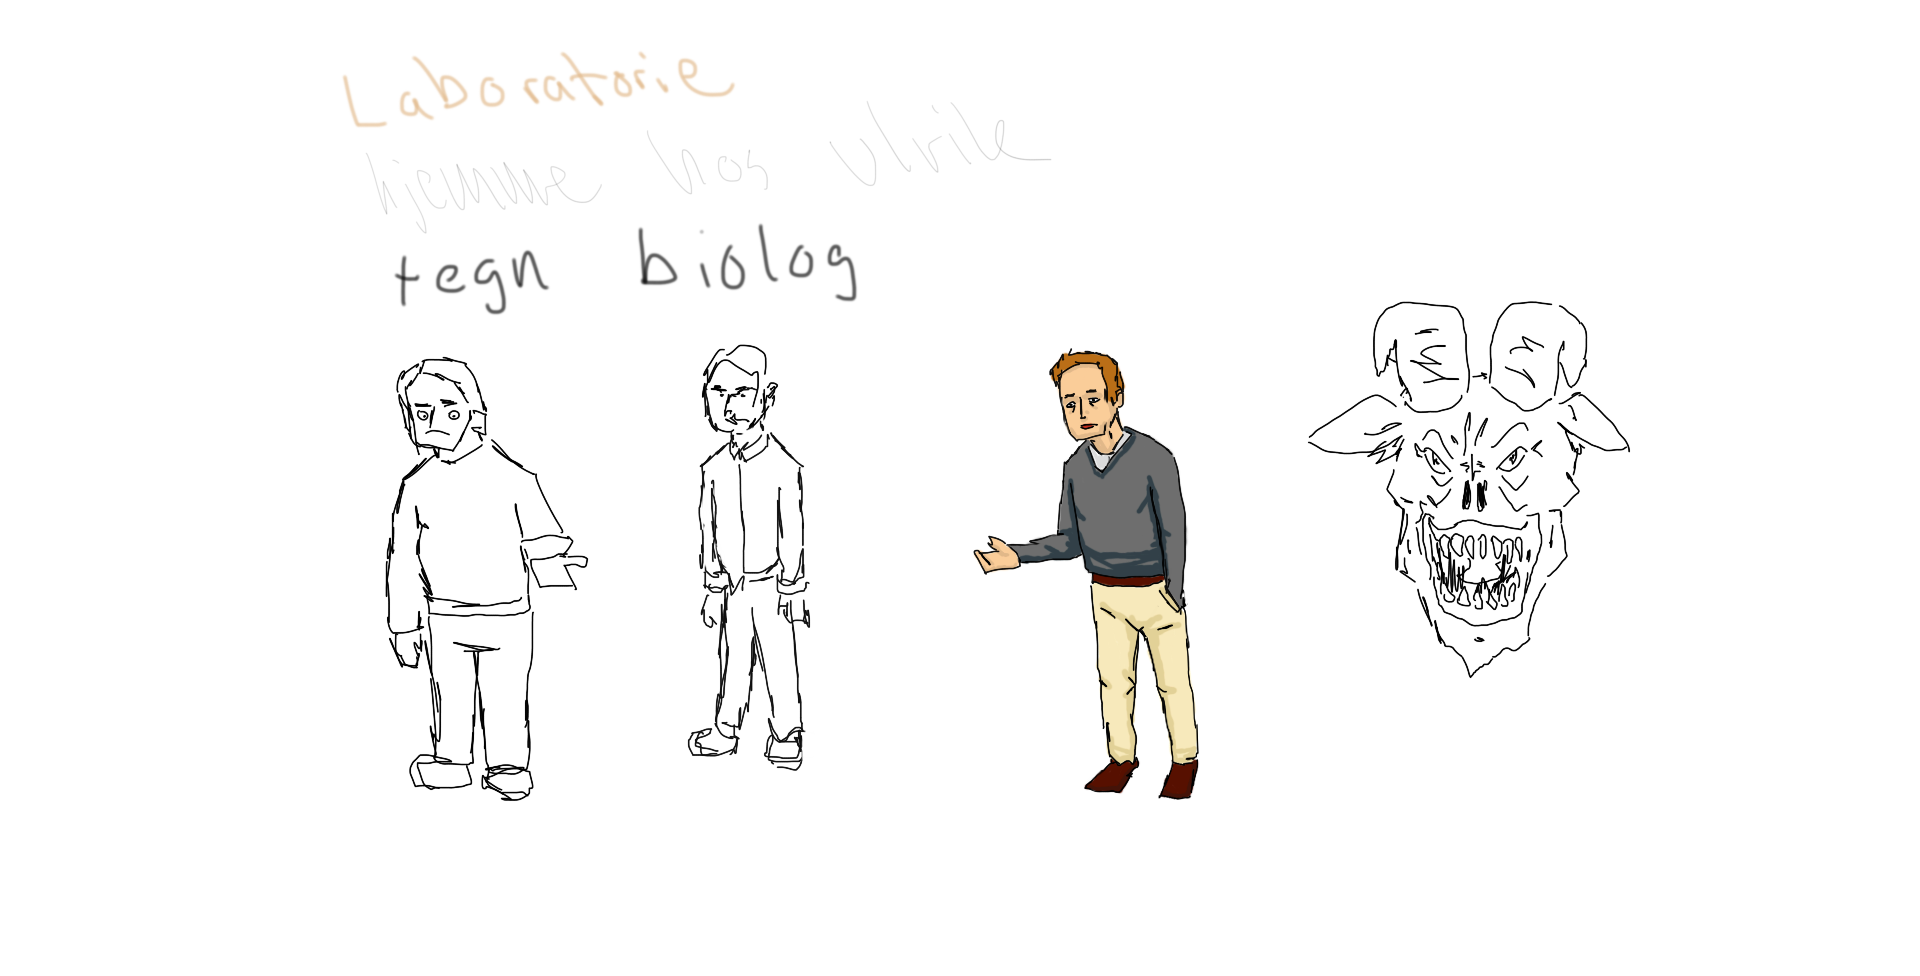 Laboratorie
hjemme hos ulrik
tegn biolog